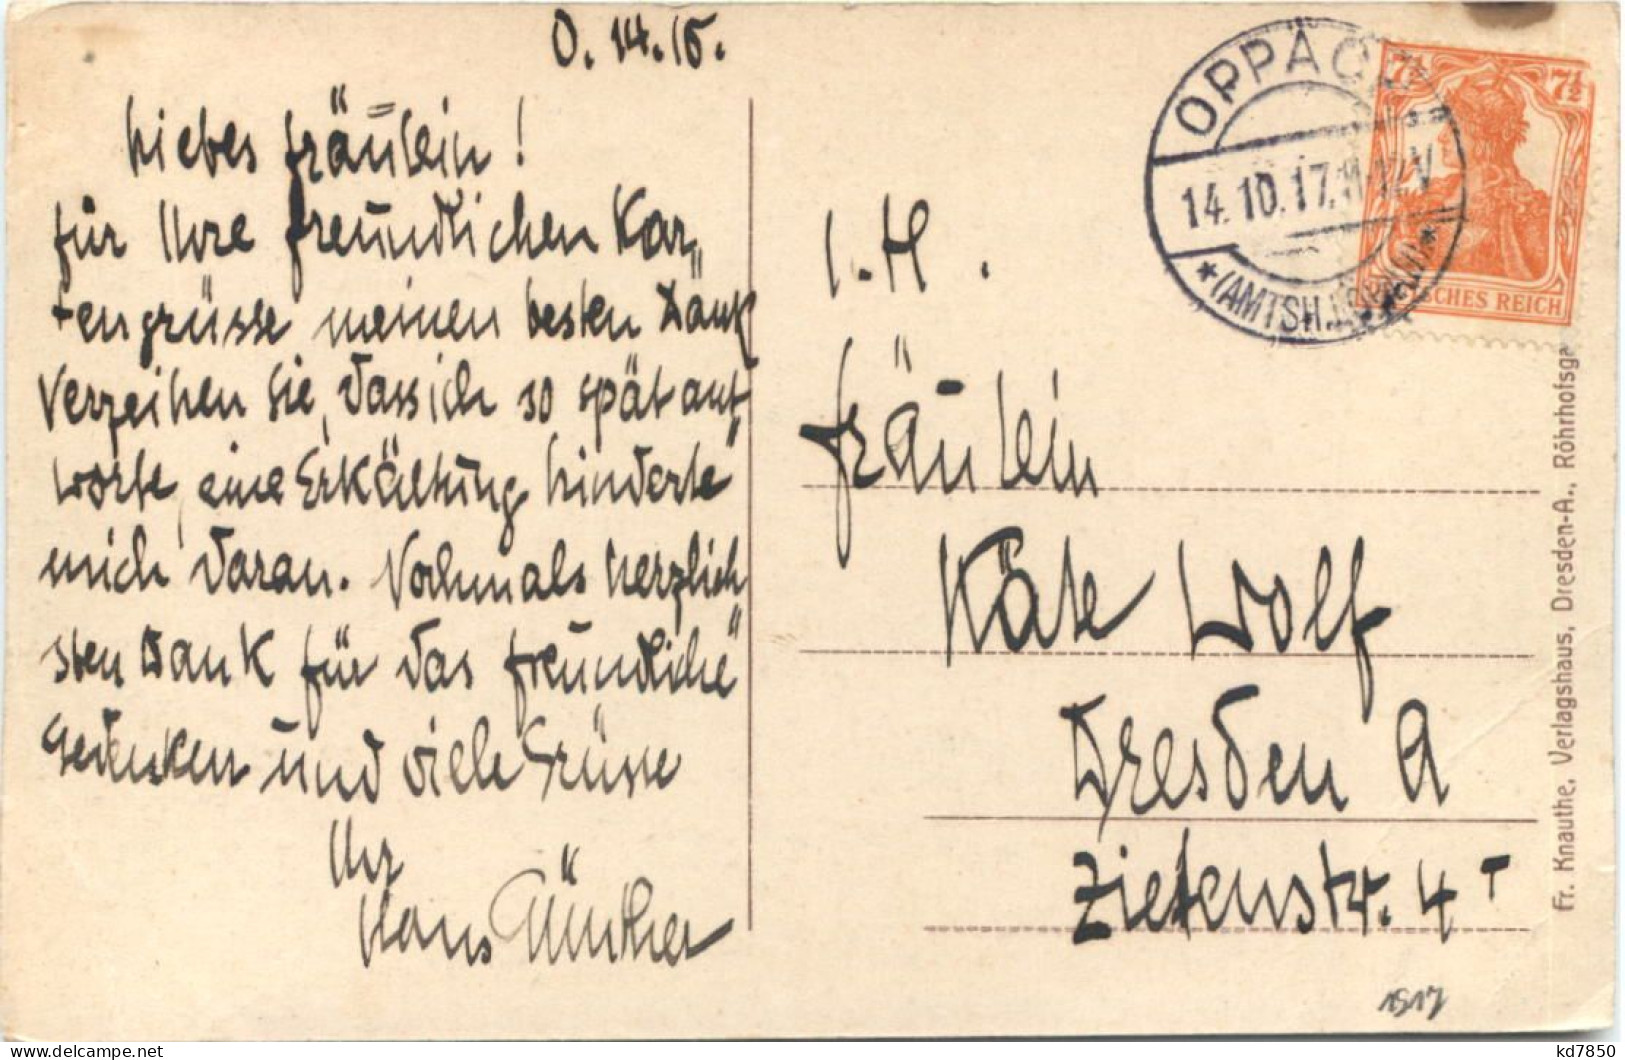 O. 14. 10.
Liebes Fräulein!
für Ihre freundlichen Kar„
tengrüsse meinen besten Dank
Verzeihen Sie, dass ich so spät ant„
worte, eine Erkältung hinderte
mich daran. Nochmals herzlich
sten Dank für das freundliche
Gedenken und viele Grüsse
Ihr
Hans Günther
OPPACH
14.10.17. 11-12V
*(AMTSH. LÖBAU)*
7½ 7½
DEUTSCHES REICH
I. H.
Fräulein
Käte Wolf
Dresden A
Zietenstr. 4 I
1917
Fr. Knauthe, Verlagshaus, Dresden-A., Röhrhofsg
delcampe.net
kd7850